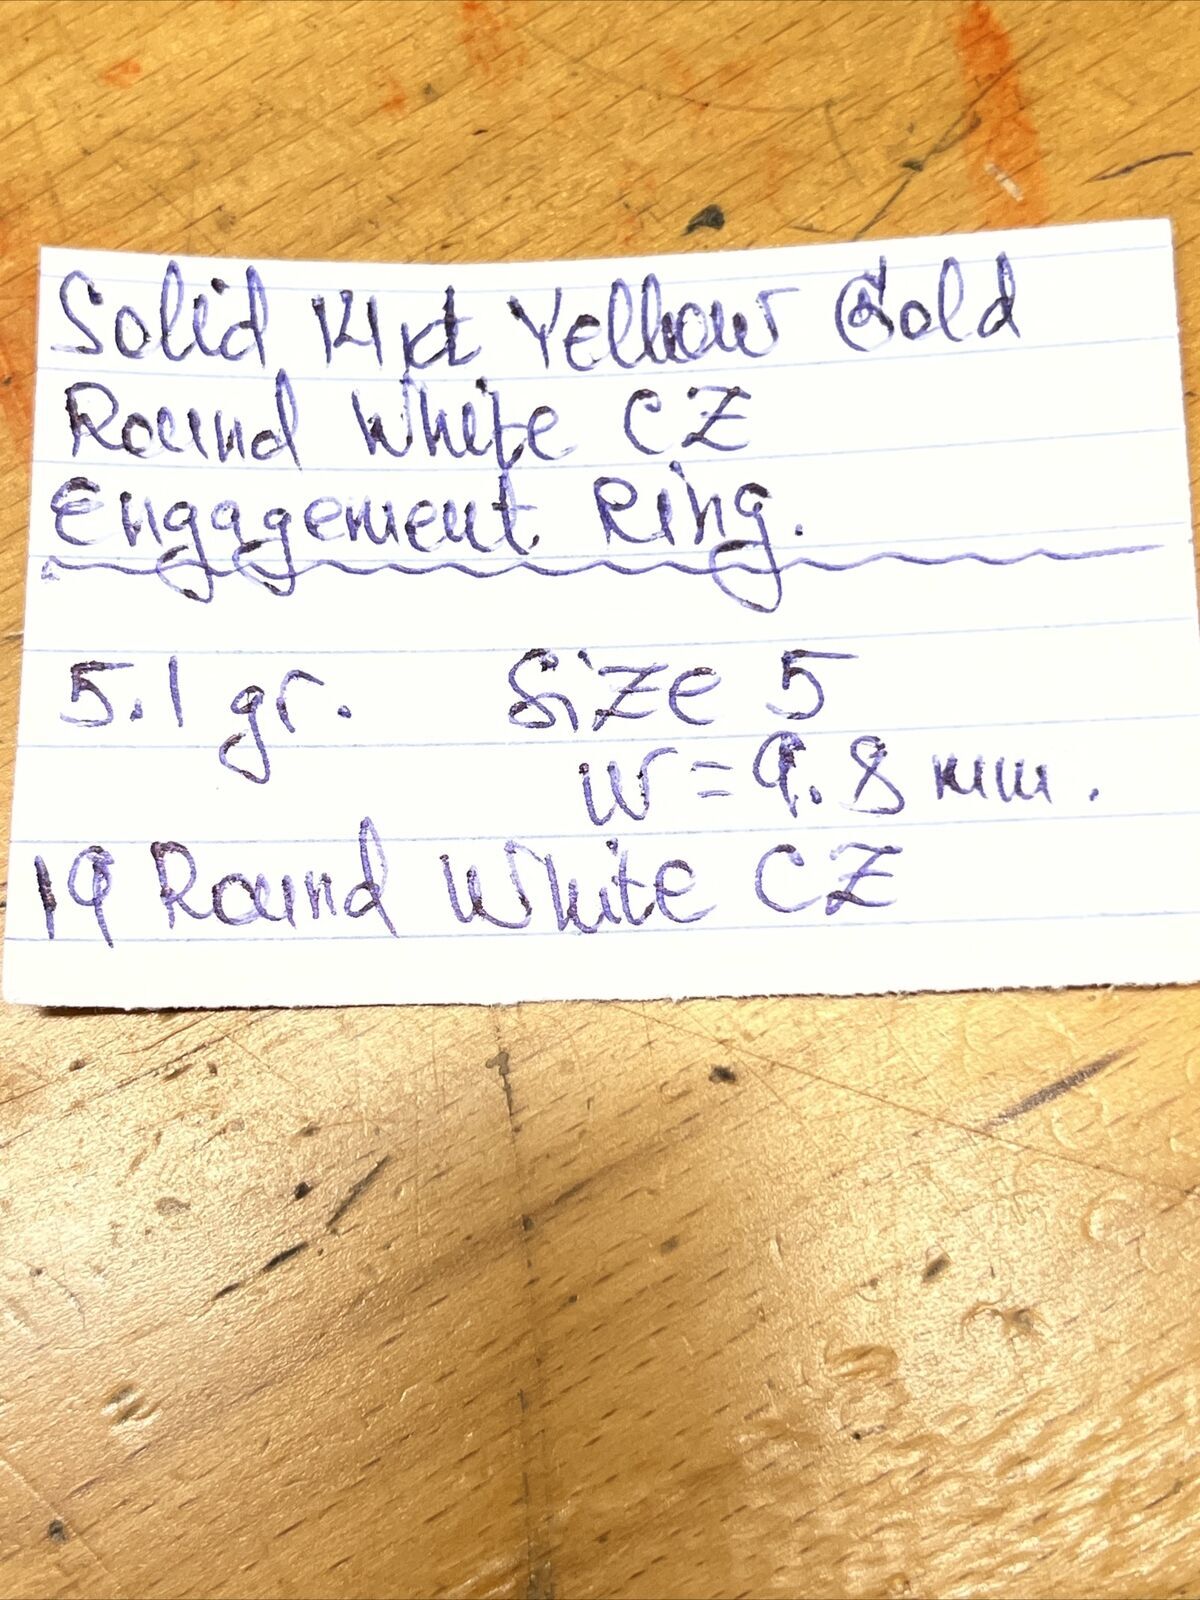 Solid 14kt Yellow Gold
Round White CZ
Engagement Ring.
5.1 gr. Size 5
W = 9.8 mm.
19 Round White CZ